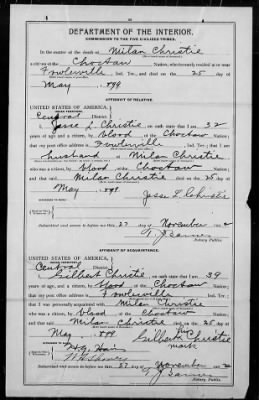 DEPARTMENT OF THE INTERIOR.
COMMISSION TO THE FIVE CIVILIZED TRIBES.
In the matter of the death of Milan Christie
a citizen of the Choctaw Nation, who formerly resided at or near
Fowlerville, Ind. Ter., and died on the 25 day of
May 1899
AFFIDAVIT OF RELATIVE.
UNITED STATES OF AMERICA,
INDIAN TERRITORY,
Central District.
I, Jesse L Christie, on oath state that I am 32
years of age and a citizen, by blood, of the Choctaw Nation;
that my post office address is Fowlerville, Ind. Ter.; that I am
husband of Milan Christie
who was a citizen, by blood, of the Choctaw
Nation; and that said Milan Christie died on the 25 day of
May, 1899
Jesse L. Christie
Subscribed and sworn to before me this 27 day of November
Notary Public.
AFFIDAVIT OF ACQUAINTANCE.
UNITED STATES OF AMERICA,
INDIAN TERRITORY,
Central District.
I, Gilbert Christie, on oath state that I am 39
years of age, and a citizen by blood of the Choctaw Nation;
that my post office address is Fowlerville, Ind. Ter.;
that I was personally acquainted with Milan Christie
who was a citizen, by blood, of the Choctaw
Nation; and that said Milan Christie died on the 25 day of
May, 1899
Gilbert Christie
mark
Subscribed and sworn to before me this 27 day of November
Notary Public.